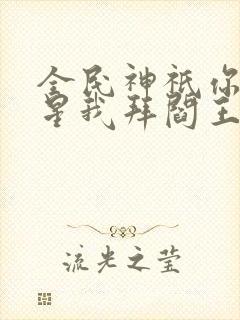 全民神祇你
星我拜阎王
流光之莹